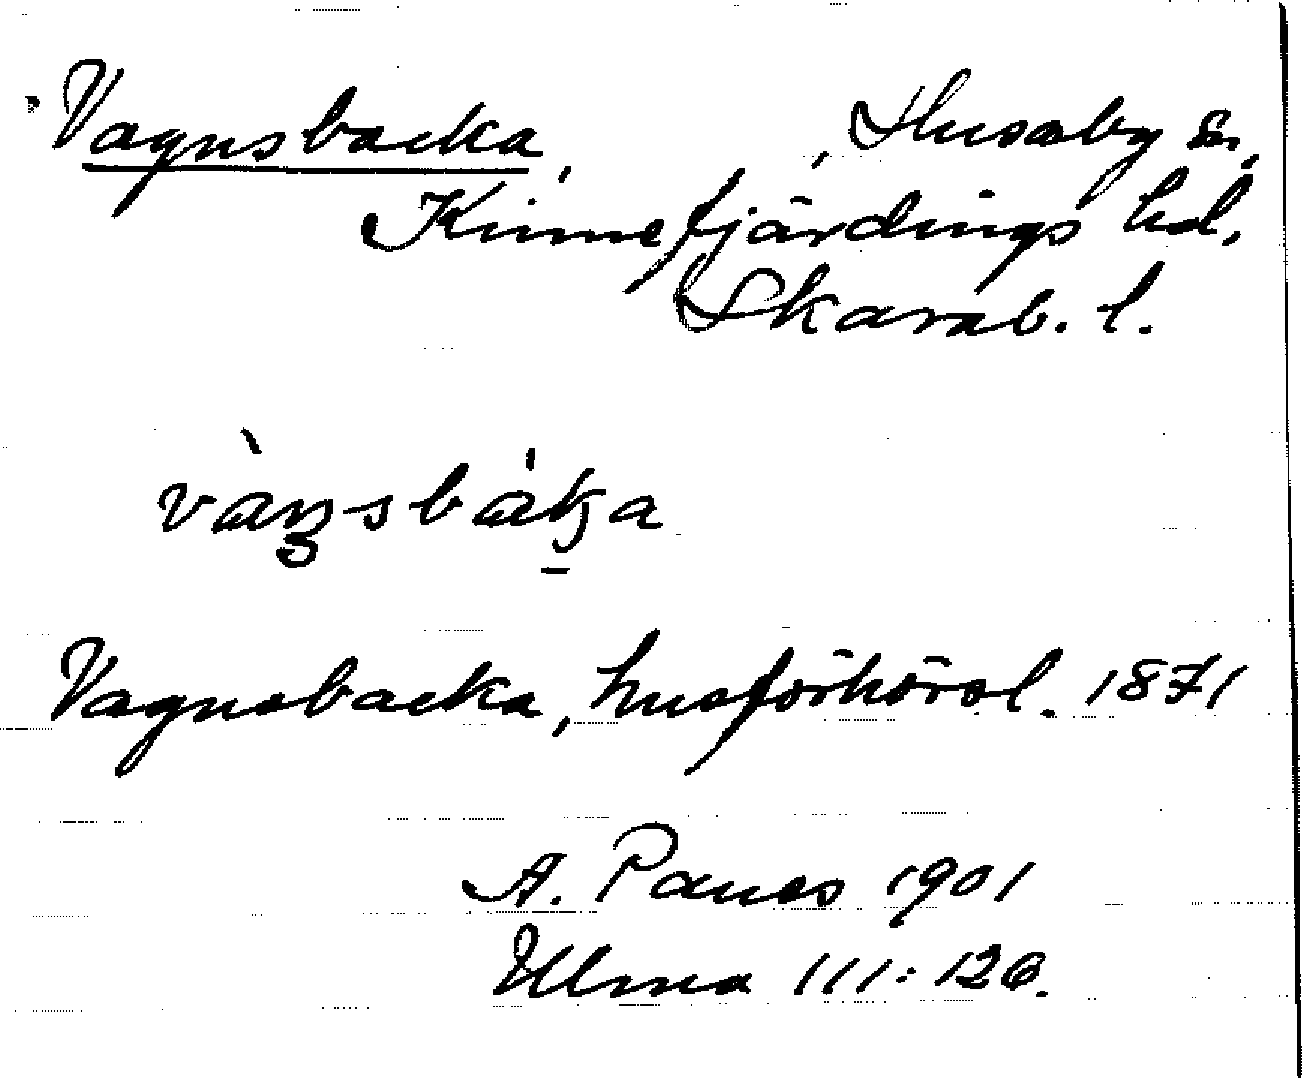 Vagnsbacka, , Husaby sn,
Kinnefjärdings hd,
Skarab. l.
Vagnsbacka, husförhörsl. 1871
A. Panes 1901
Ulma 111:126.